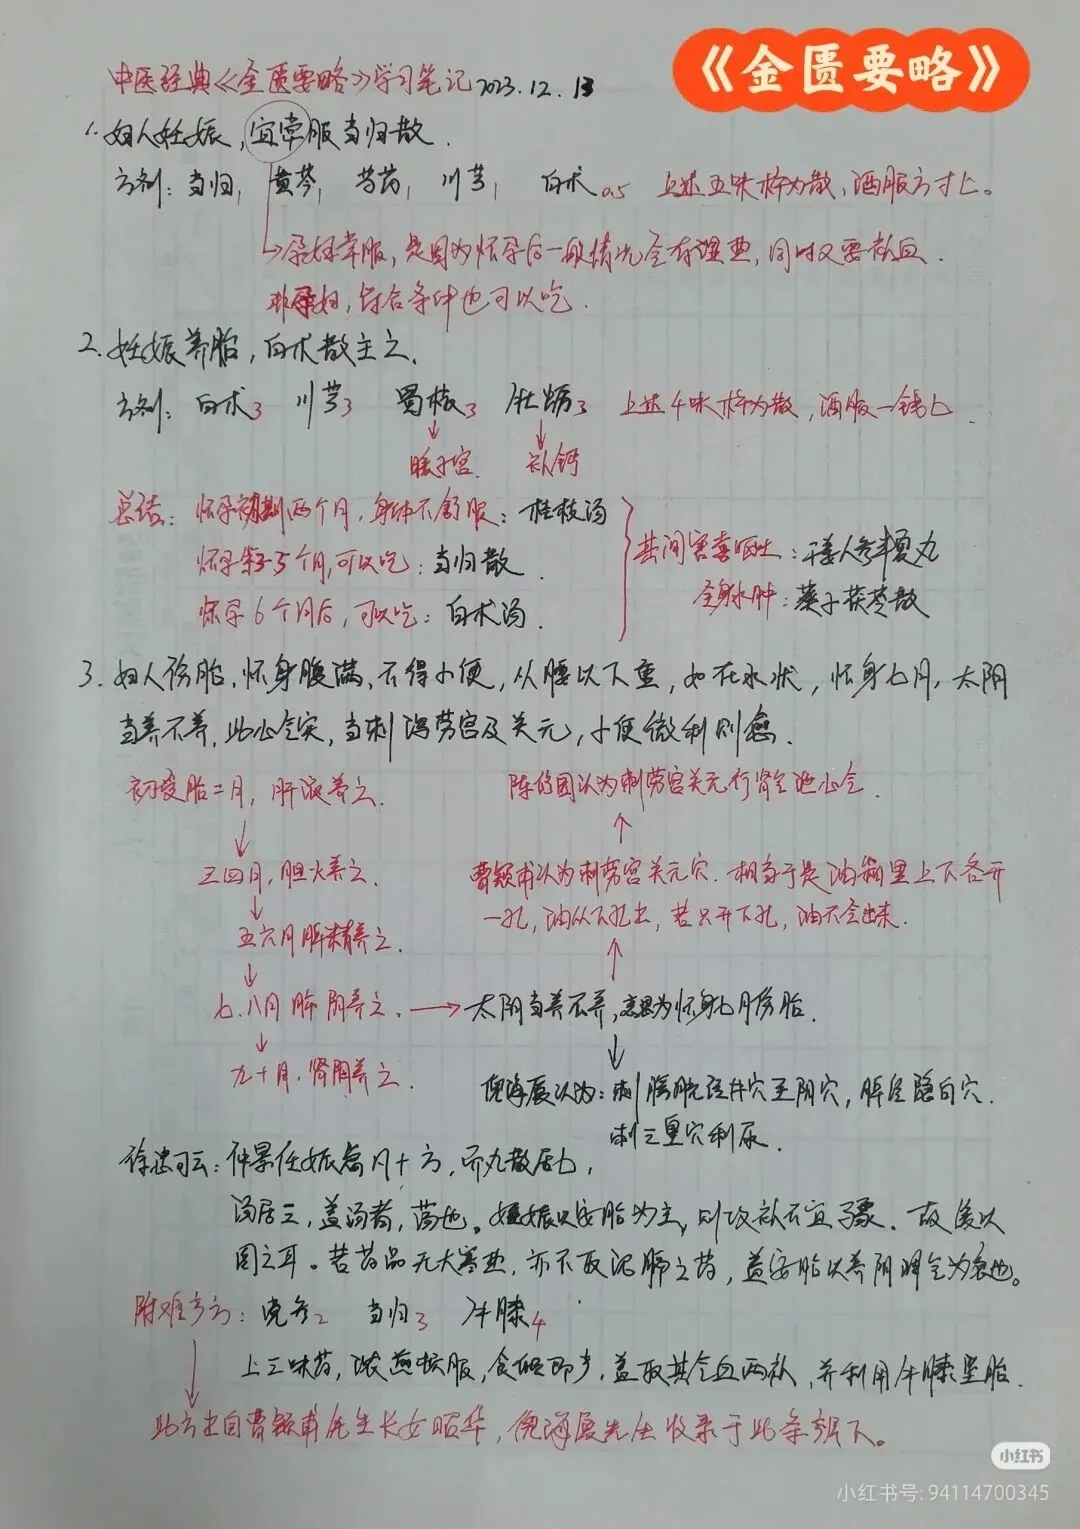 《金匮要略》
中医经典《金匮要略》学习笔记2023.12.13
1.妇人妊娠,宜常服当归散.
方剂:当归1 黄芩1 芍药1 川芎1 白术0.5 上述五味杵为散,酒服方寸匕。
孕妇常服,是因为怀孕后一般情况会有湿热,同时又要敛血.
非孕妇,符合条件也可以吃.
2.妊娠养胎,白术散主之.
方剂:白术3 川芎3 蜀椒3 牡蛎3 上述4味杵为散,酒服一钱匕.
暖子宫. 补钙
总结:怀孕初期两个月,身体不舒服:桂枝汤
怀孕第3-5个月,可以吃:当归散.
怀孕6个月后,可以吃:白术汤.
其间害喜呕吐:干姜人参半夏丸
全身水肿:葵子茯苓散
3.妇人伤胎,怀身腹满,不得小便,从腰以下重,如有水状,怀身七月,太阴
当养不养,此心气实,当刺泻劳宫及关元,小便微利则愈.
初受胎二月,肝液养之.
陈修园认为刺劳宫关元行肾气泄心气.
三四月,胆火养之.
曹颖甫认为刺劳宫关元穴.相当于是油箱里上下各开
一孔,油从下孔出,若只开下孔,油不会出来.
五六月脾精养之.
七.八月肺阴养之.
太阴当养不养,意思为怀身七月伤胎.
九十月.肾阴养之.
倪海厦认为:刺膀胱经井穴至阴穴,脾经隐白穴.
刺三里穴利尿.
徐忠可云:仲景妊娠篇凡十方,而丸散居七,
汤居三,盖汤者,荡也。妊娠以安胎为主,则攻补不宜骤.故缓以
图之耳。若药品无大寒热,亦不取泥膈之药,盖安胎以养阴调气为急也。
附难产方:党参2 当归3 牛膝4
上三味药,浓煎顿服,食顷即产,盖取其气血两补,并利用牛膝坠胎.
此方出自曹颖甫先生长女昭华,倪海厦先生收录于此条辨下。
小红书
小红书号:94114700345